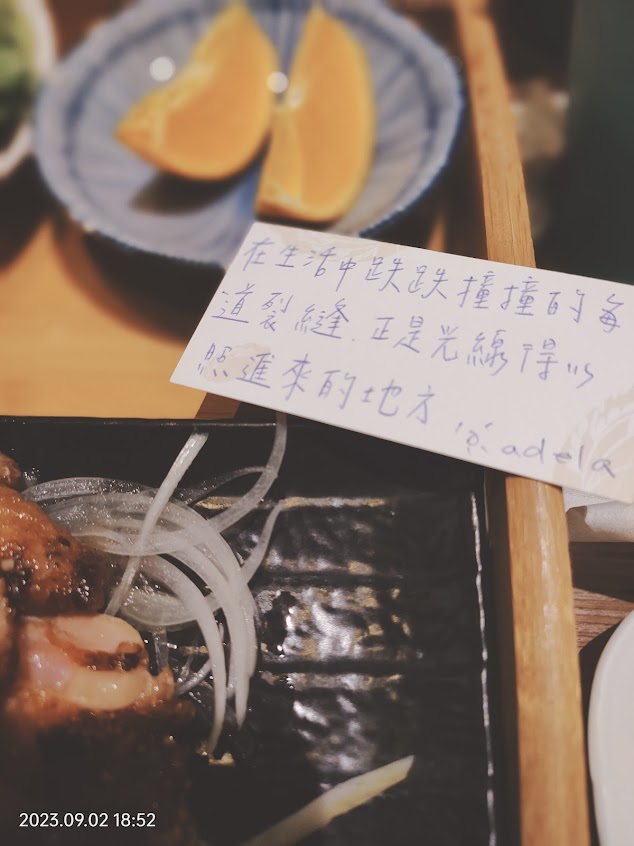 在生活中跌跌撞撞的每
道裂縫.正是光線得以
照進來的地方
adela
2023.09.02 18:52